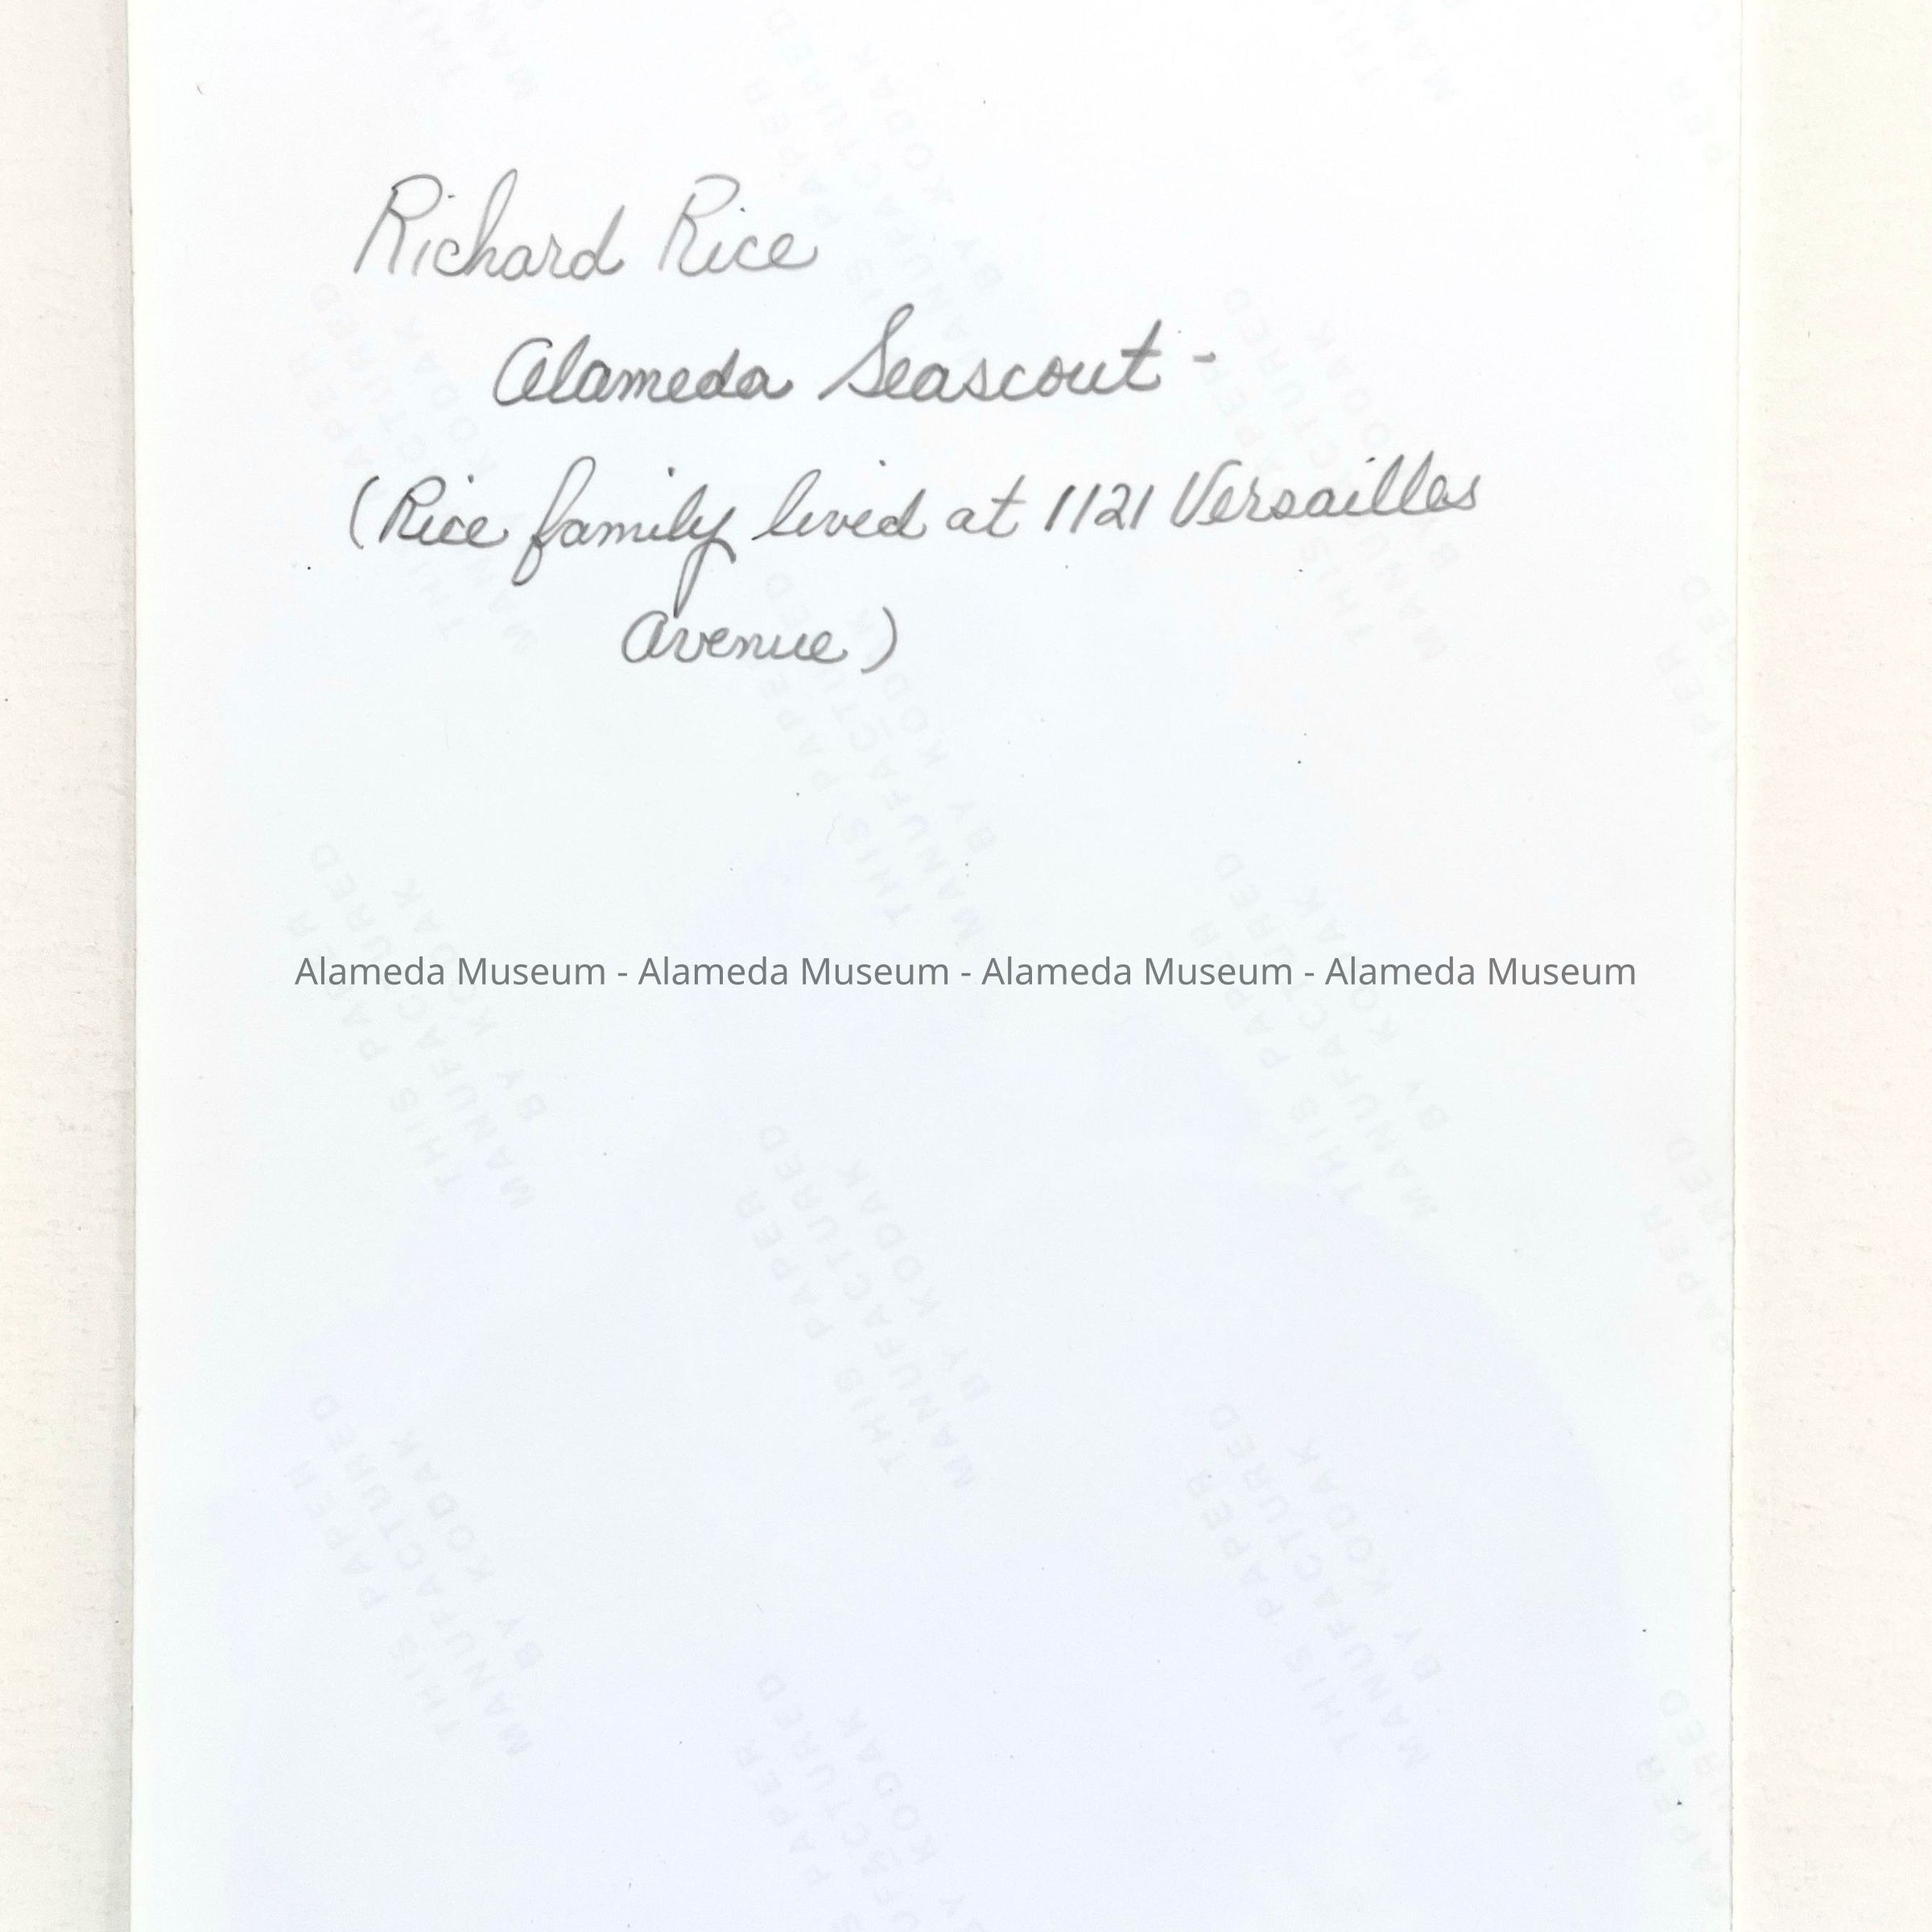 Richard Rice
Alameda Seascout -
(Rice family lived at 1121 Versailles
Avenue)
Alameda Museum - Alameda Museum - Alameda Museum - Alameda Museum
THIS PAPER
MANUFACTURED
BY KODAK